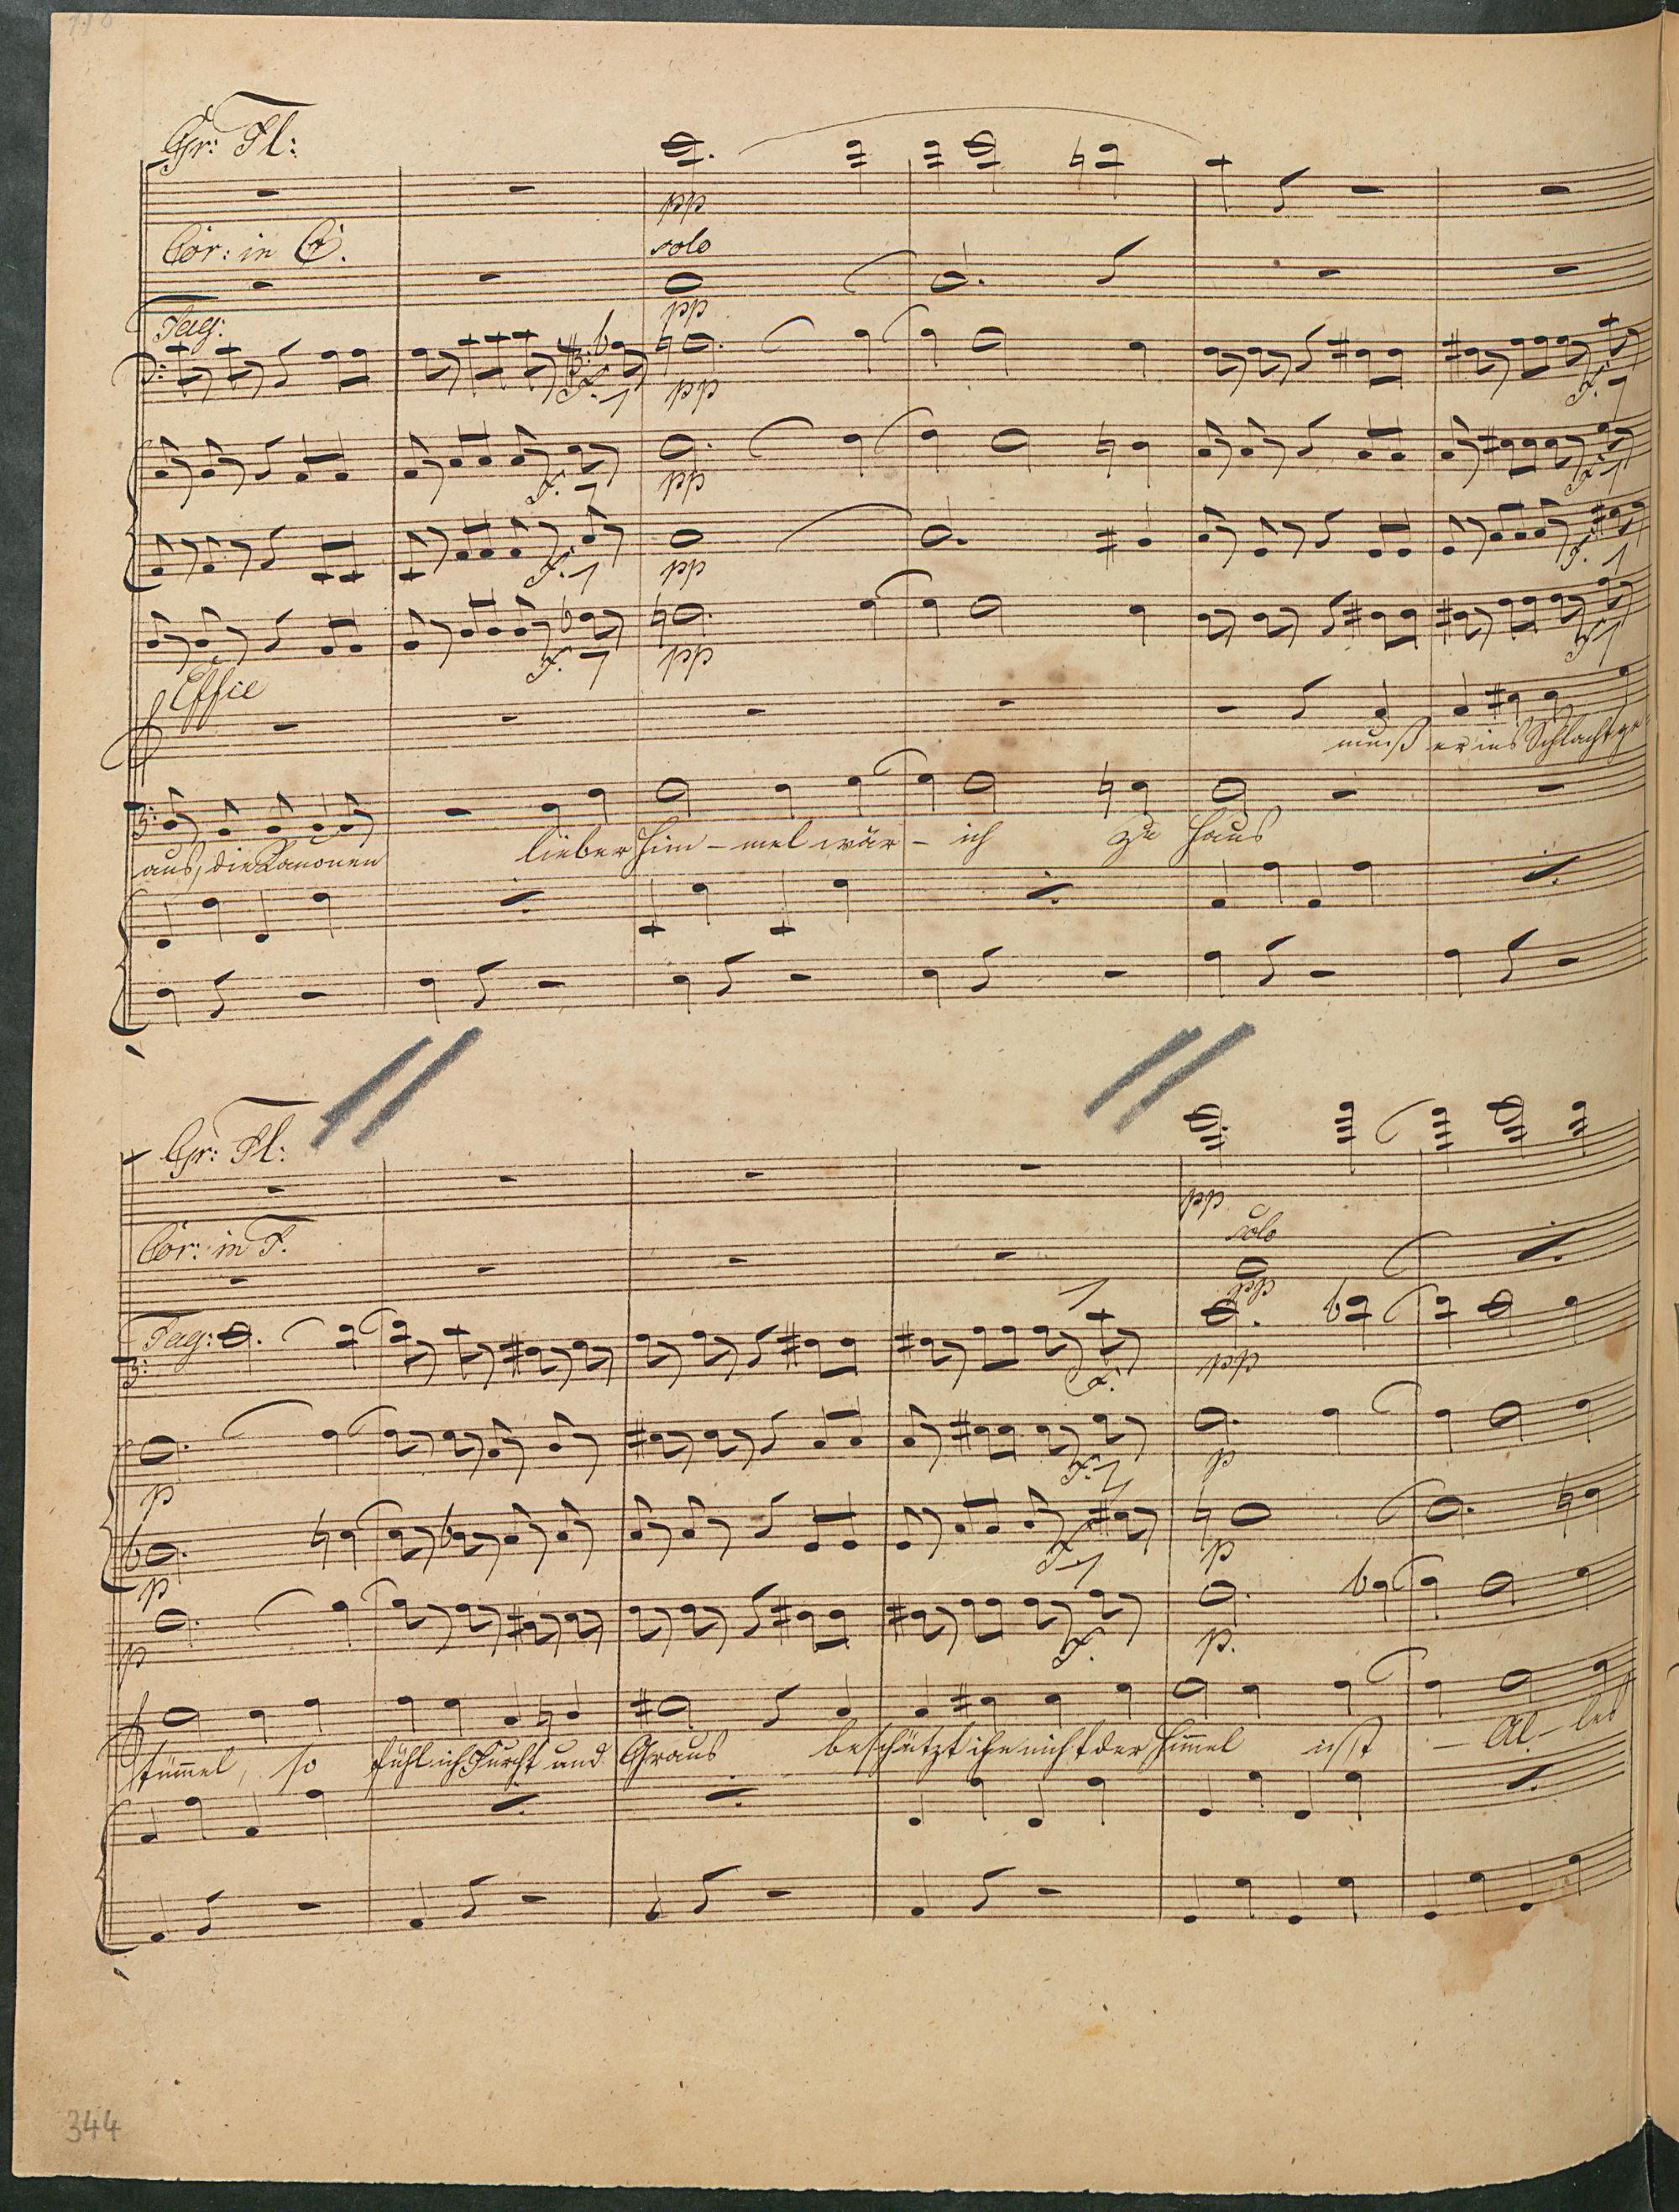 Gr: Fl:
pp
Cor: in C.
solo
pp
Fag:
f. pp f.
f. pp f.
f. pp f.
f. pp f.
Effie
muß er ins Schlachtge
aus, die Kanonen lieber Him - mel wär - ich zu Haus
Gr: Fl:
pp
Cor: in F.
solo
pp
Fag:
f. pp
p f. p
p f. p
p f. p.
tümmel, so fühl ich Furcht und Graus beschützt ihn nicht der Himmel ist - Al - les
344